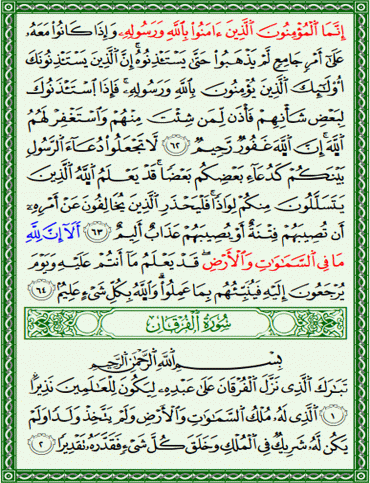 إِنَّمَا ٱلْمُؤْمِنُونَ ٱلَّذِينَ ءَامَنُوا۟ بِٱللَّهِ وَرَسُولِهِۦ وَإِذَا كَانُوا۟ مَعَهُۥ
عَلَىٰٓ أَمْرٍ جَامِعٍ لَّمْ يَذْهَبُوا۟ حَتَّىٰ يَسْتَـْٔذِنُوهُ ۚ إِنَّ ٱلَّذِينَ يَسْتَـْٔذِنُونَكَ
أُو۟لَـٰٓئِكَ ٱلَّذِينَ يُؤْمِنُونَ بِٱللَّهِ وَرَسُولِهِۦ ۚ فَإِذَا ٱسْتَـْٔذَنُوكَ
لِبَعْضِ شَأْنِهِمْ فَأْذَن لِّمَن شِئْتَ مِنْهُمْ وَٱسْتَغْفِرْ لَهُمُ
ٱللَّهَ ۚ إِنَّ ٱللَّهَ غَفُورٌ رَّحِيمٌ ٦٢ لَّا تَجْعَلُوا۟ دُعَآءَ ٱلرَّسُولِ
بَيْنَكُمْ كَدُعَآءِ بَعْضِكُم بَعْضًا ۚ قَدْ يَعْلَمُ ٱللَّهُ ٱلَّذِينَ
يَتَسَلَّلُونَ مِنكُمْ لِوَاذًا ۚ فَلْيَحْذَرِ ٱلَّذِينَ يُخَالِفُونَ عَنْ أَمْرِهِۦٓ
أَن تُصِيبَهُمْ فِتْنَةٌ أَوْ يُصِيبَهُمْ عَذَابٌ أَلِيمٌ ٦٣ أَلَآ إِنَّ لِلَّهِ
مَا فِى ٱلسَّمَـٰوَٰتِ وَٱلْأَرْضِ ۖ قَدْ يَعْلَمُ مَآ أَنتُمْ عَلَيْهِ وَيَوْمَ
يُرْجَعُونَ إِلَيْهِ فَيُنَبِّئُهُم بِمَا عَمِلُوا۟ ۗ وَٱللَّهُ بِكُلِّ شَىْءٍ عَلِيمٌ ٦٤
سُورَةُ الْفُرْقَانِ
بِسْمِ ٱللَّهِ ٱلرَّحْمَـٰنِ ٱلرَّحِيمِ
تَبَارَكَ ٱلَّذِى نَزَّلَ ٱلْفُرْقَانَ عَلَىٰ عَبْدِهِۦ لِيَكُونَ لِلْعَـٰلَمِينَ نَذِيرًا
١ ٱلَّذِى لَهُۥ مُلْكُ ٱلسَّمَـٰوَٰتِ وَٱلْأَرْضِ وَلَمْ يَتَّخِذْ وَلَدًا وَلَمْ
يَكُن لَّهُۥ شَرِيكٌ فِى ٱلْمُلْكِ وَخَلَقَ كُلَّ شَىْءٍ فَقَدَّرَهُۥ تَقْدِيرًا ٢